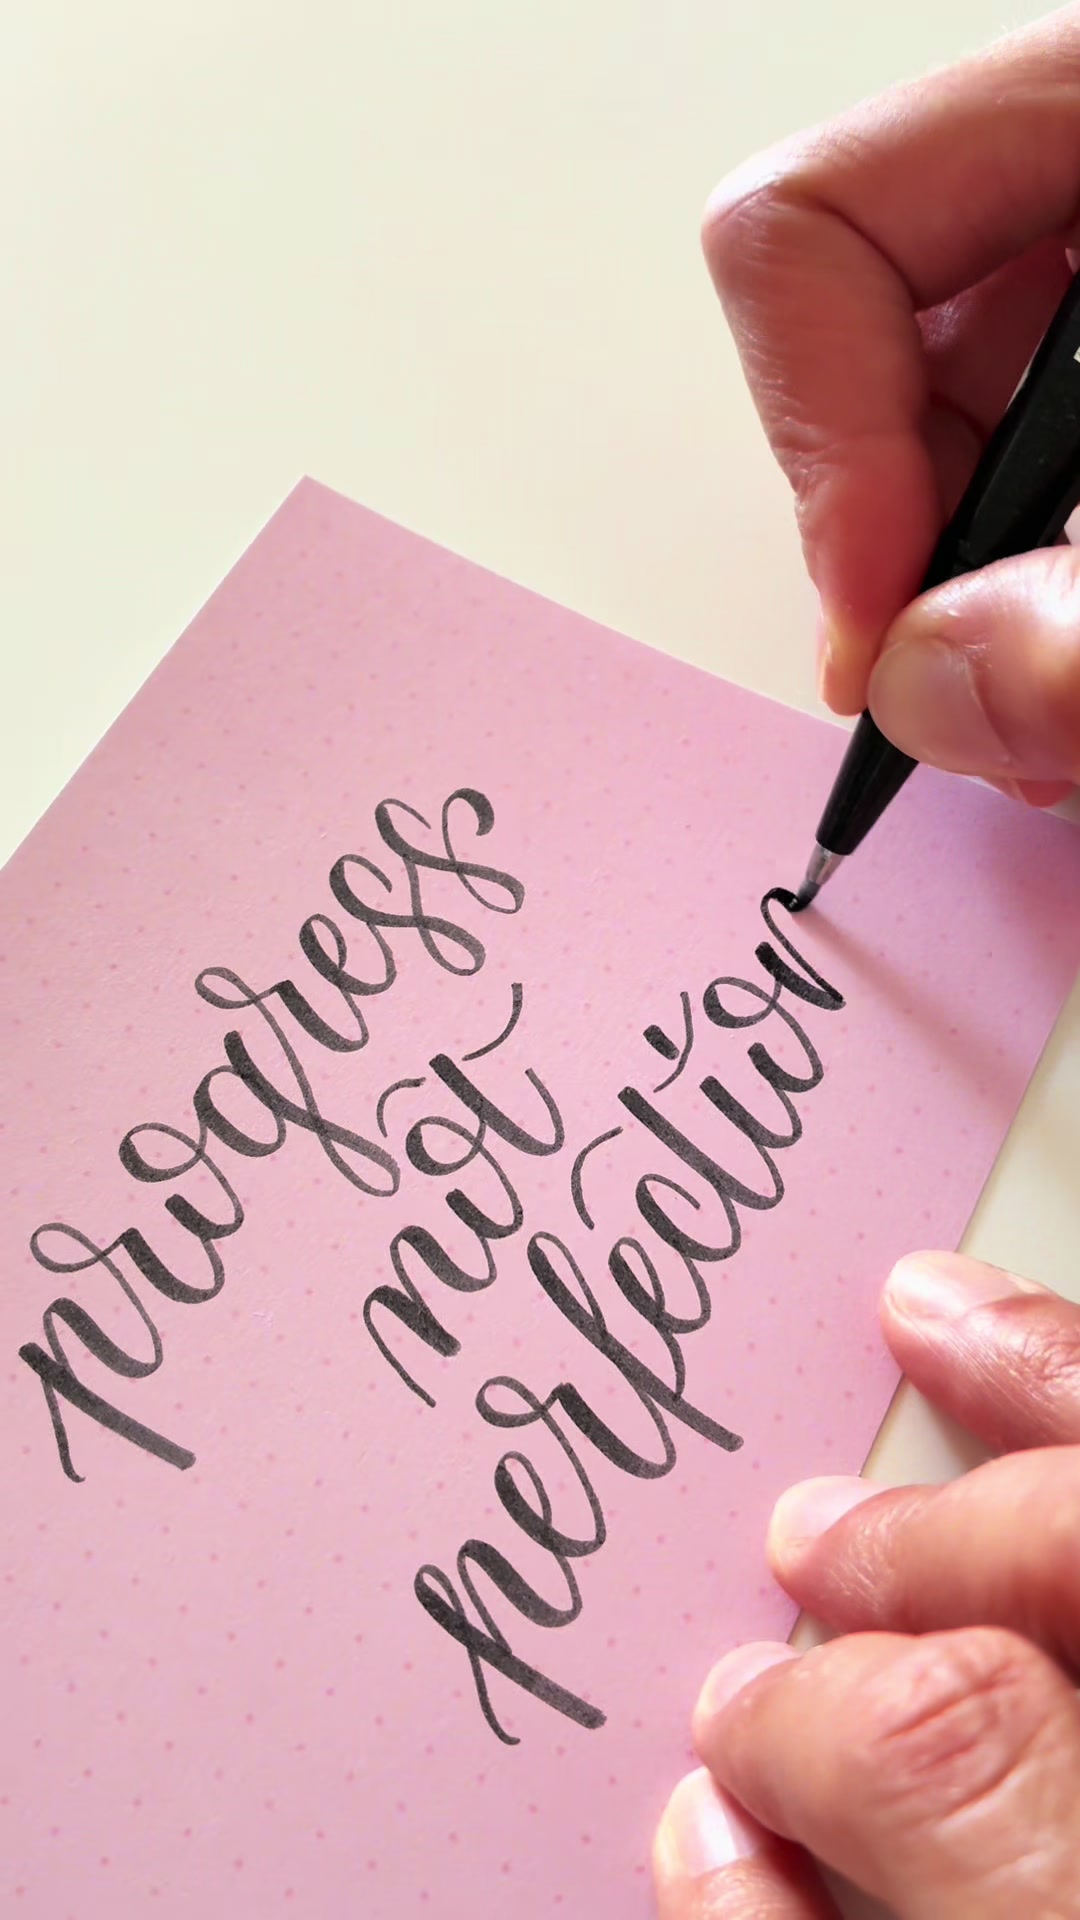 progress
not
perfection